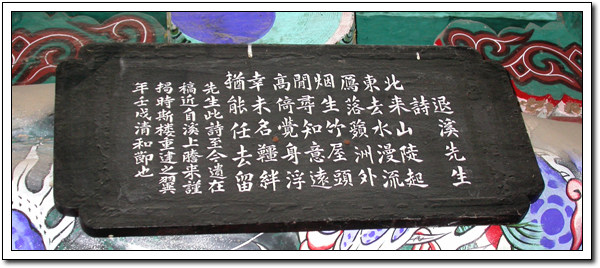 退溪先生
詩
北來山陡起
東去水漫流
鴈落蘋洲外
烟生竹屋頭
閒尋知意遠
高倚覺身浮
幸未名韁絆
猶能任去留
先生此詩至今遺在
稿近自溪上謄来謹
揭時斯楼重建之翌
年壬戌清和節也